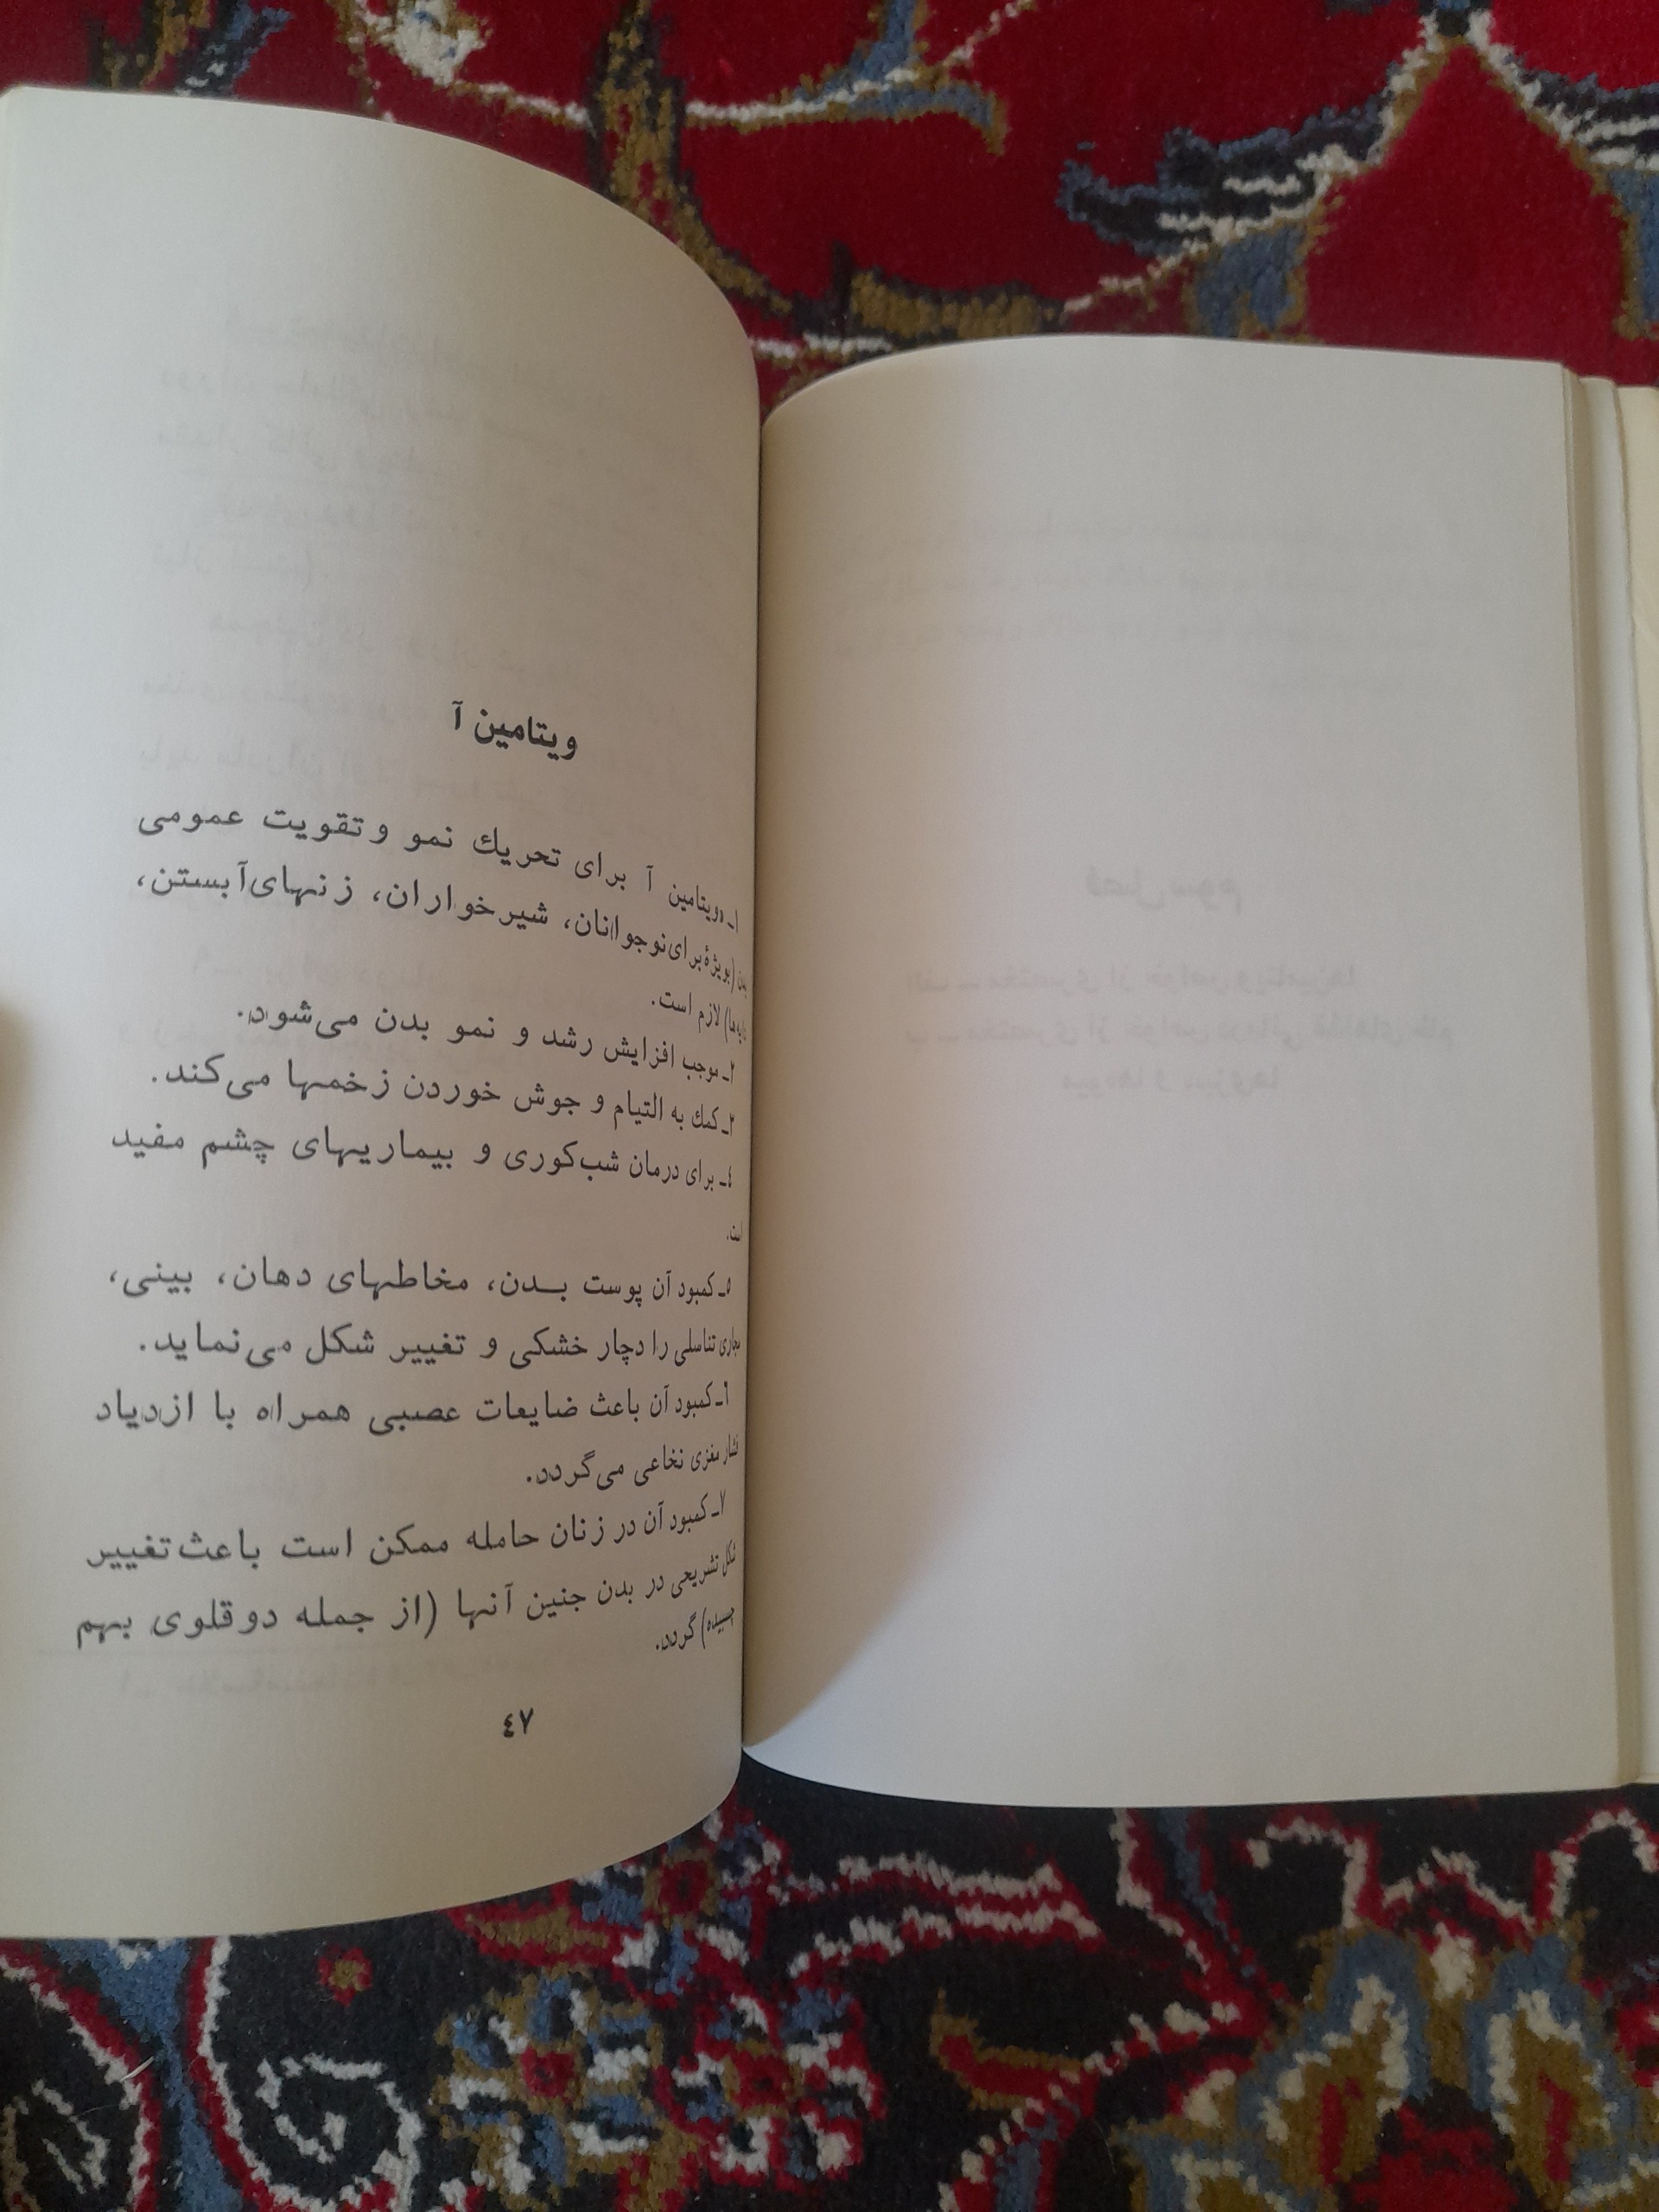 ویتامین آ
۱ـ «ویتامین آ برای تحریك نمو و تقویت عمومی
بدن (بویژه برای نوجوانان، شیرخواران، زنهای آبستن،
دایه‌ها) لازم است.
۲ـ موجب افزایش رشد و نمو بدن می‌شود.
۳ـ كمك به التیام و جوش خوردن زخمها می‌كند.
٤ـ برای درمان شب‌كوری و بیماریهای چشم مفید
است.
۵ـ كمبود آن پوست بدن، مخاطهای دهان، بینی،
مجاری تناسلی را دچار خشكی و تغییر شكل می‌نماید.
٦ـ كمبود آن باعث ضایعات عصبی همراه با ازدیاد
فشار مغزی نخاعی می‌گردد.
۷ـ كمبود آن در زنان حامله ممكن است باعث تغییر
شكل تشریحی در بدن جنین آنها (از جمله دوقلوی بهم
چسبیده) گردد.
٤۷